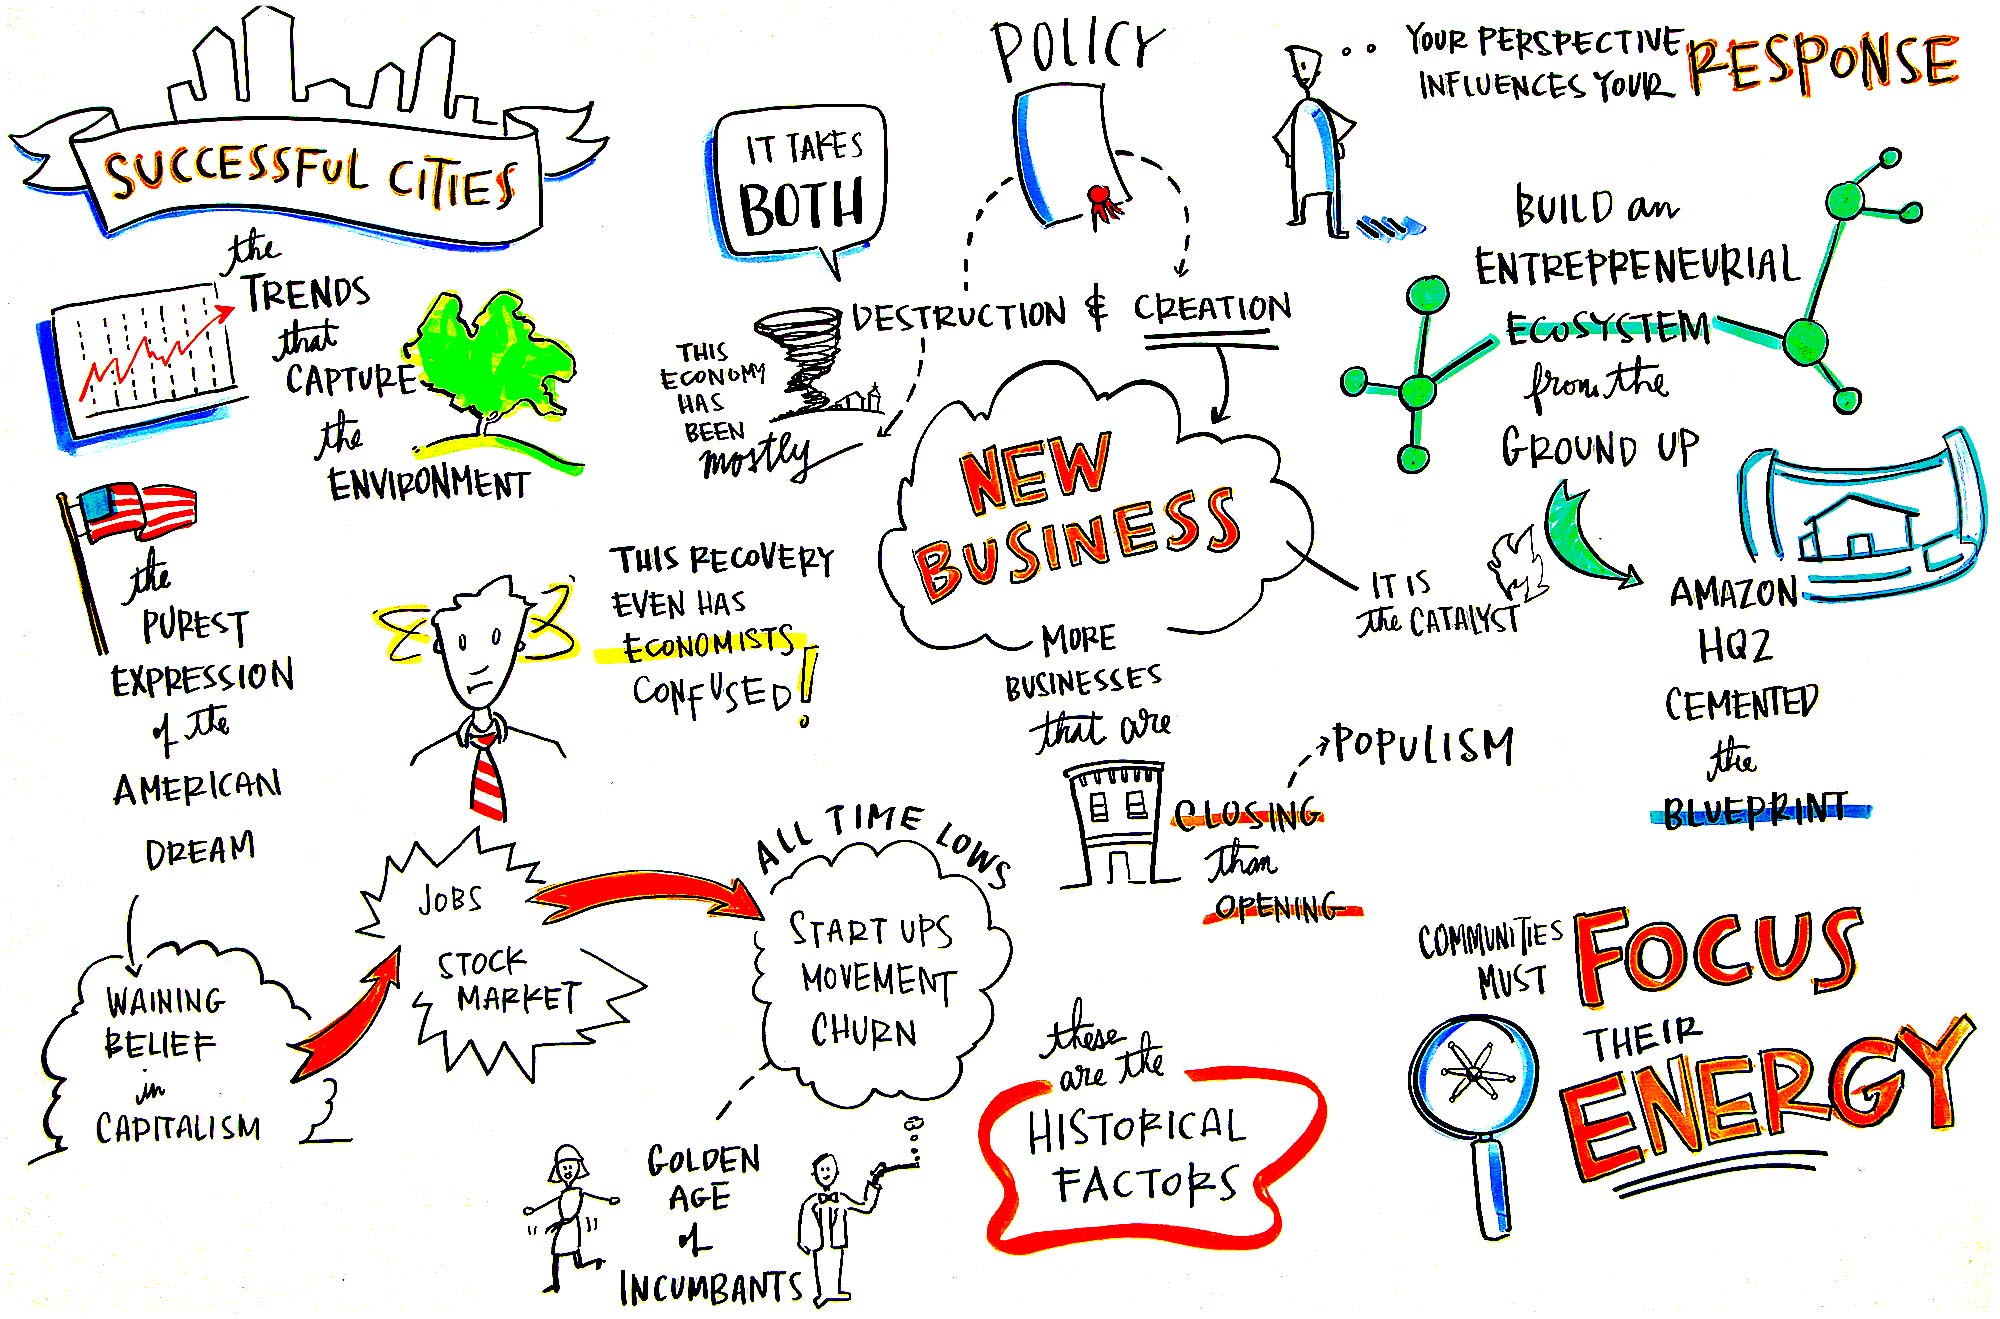 SUCCESSFUL CITIES
the
TRENDS
that
CAPTURE
the
ENVIRONMENT
the
PUREST
EXPRESSION
of the
AMERICAN
DREAM
WAINING
BELIEF
in
CAPITALISM
JOBS
STOCK
MARKET
ALL TIME LOWS
START UPS
MOVEMENT
CHURN
GOLDEN
AGE
of
INCUMBANTS
THIS RECOVERY
EVEN HAS
ECONOMISTS
CONFUSED!
POLICY
IT TAKES
BOTH
DESTRUCTION & CREATION
THIS
ECONOMY
HAS
BEEN
mostly
NEW
BUSINESS
IT IS
the CATALYST
MORE
BUSINESSES
that are
CLOSING
than
OPENING
POPULISM
these
are the
HISTORICAL
FACTORS
YOUR PERSPECTIVE
INFLUENCES YOUR RESPONSE
BUILD an
ENTREPRENEURIAL
ECOSYSTEM
from the
GROUND UP
AMAZON
HQ2
CEMENTED
the
BLUEPRINT
COMMUNITIES
MUST FOCUS
THEIR
ENERGY